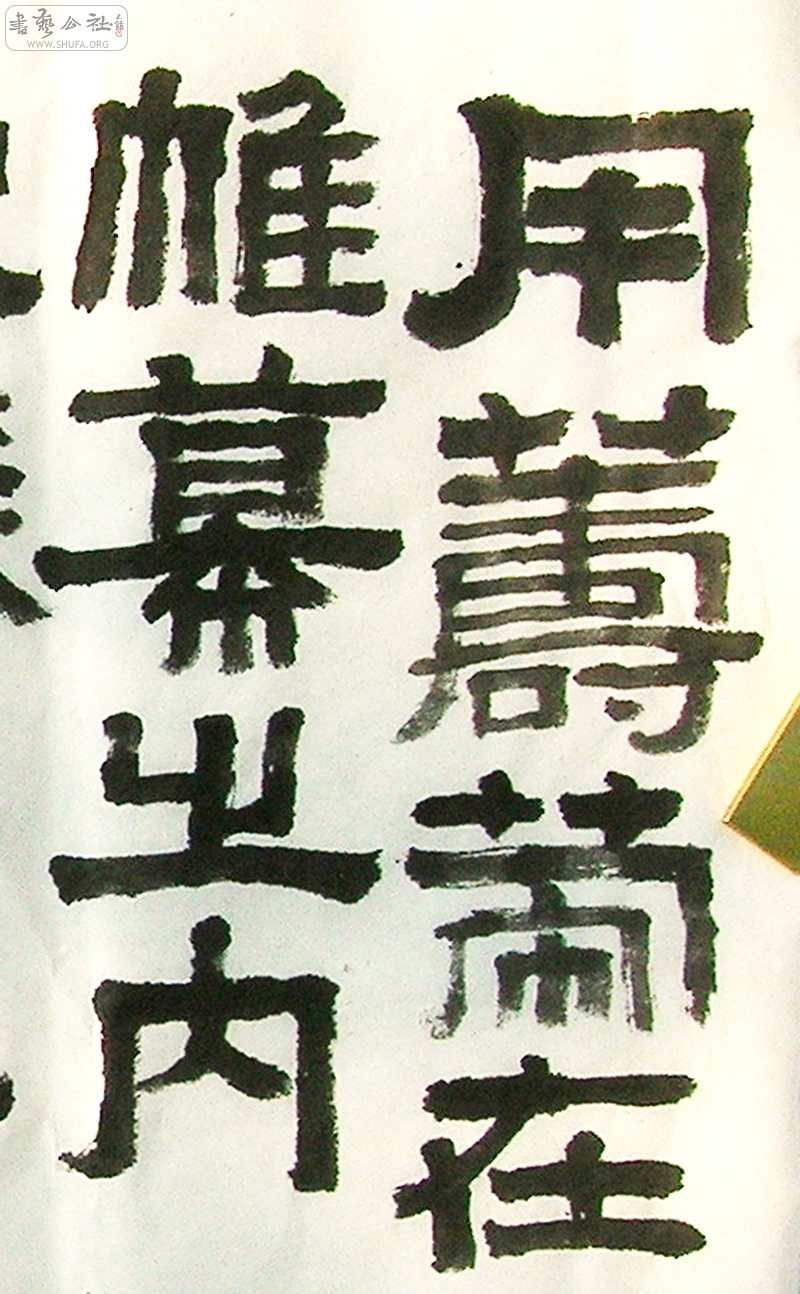 書藝公社
WWW.SHUFA.ORG
用籌策在
帷幕之内